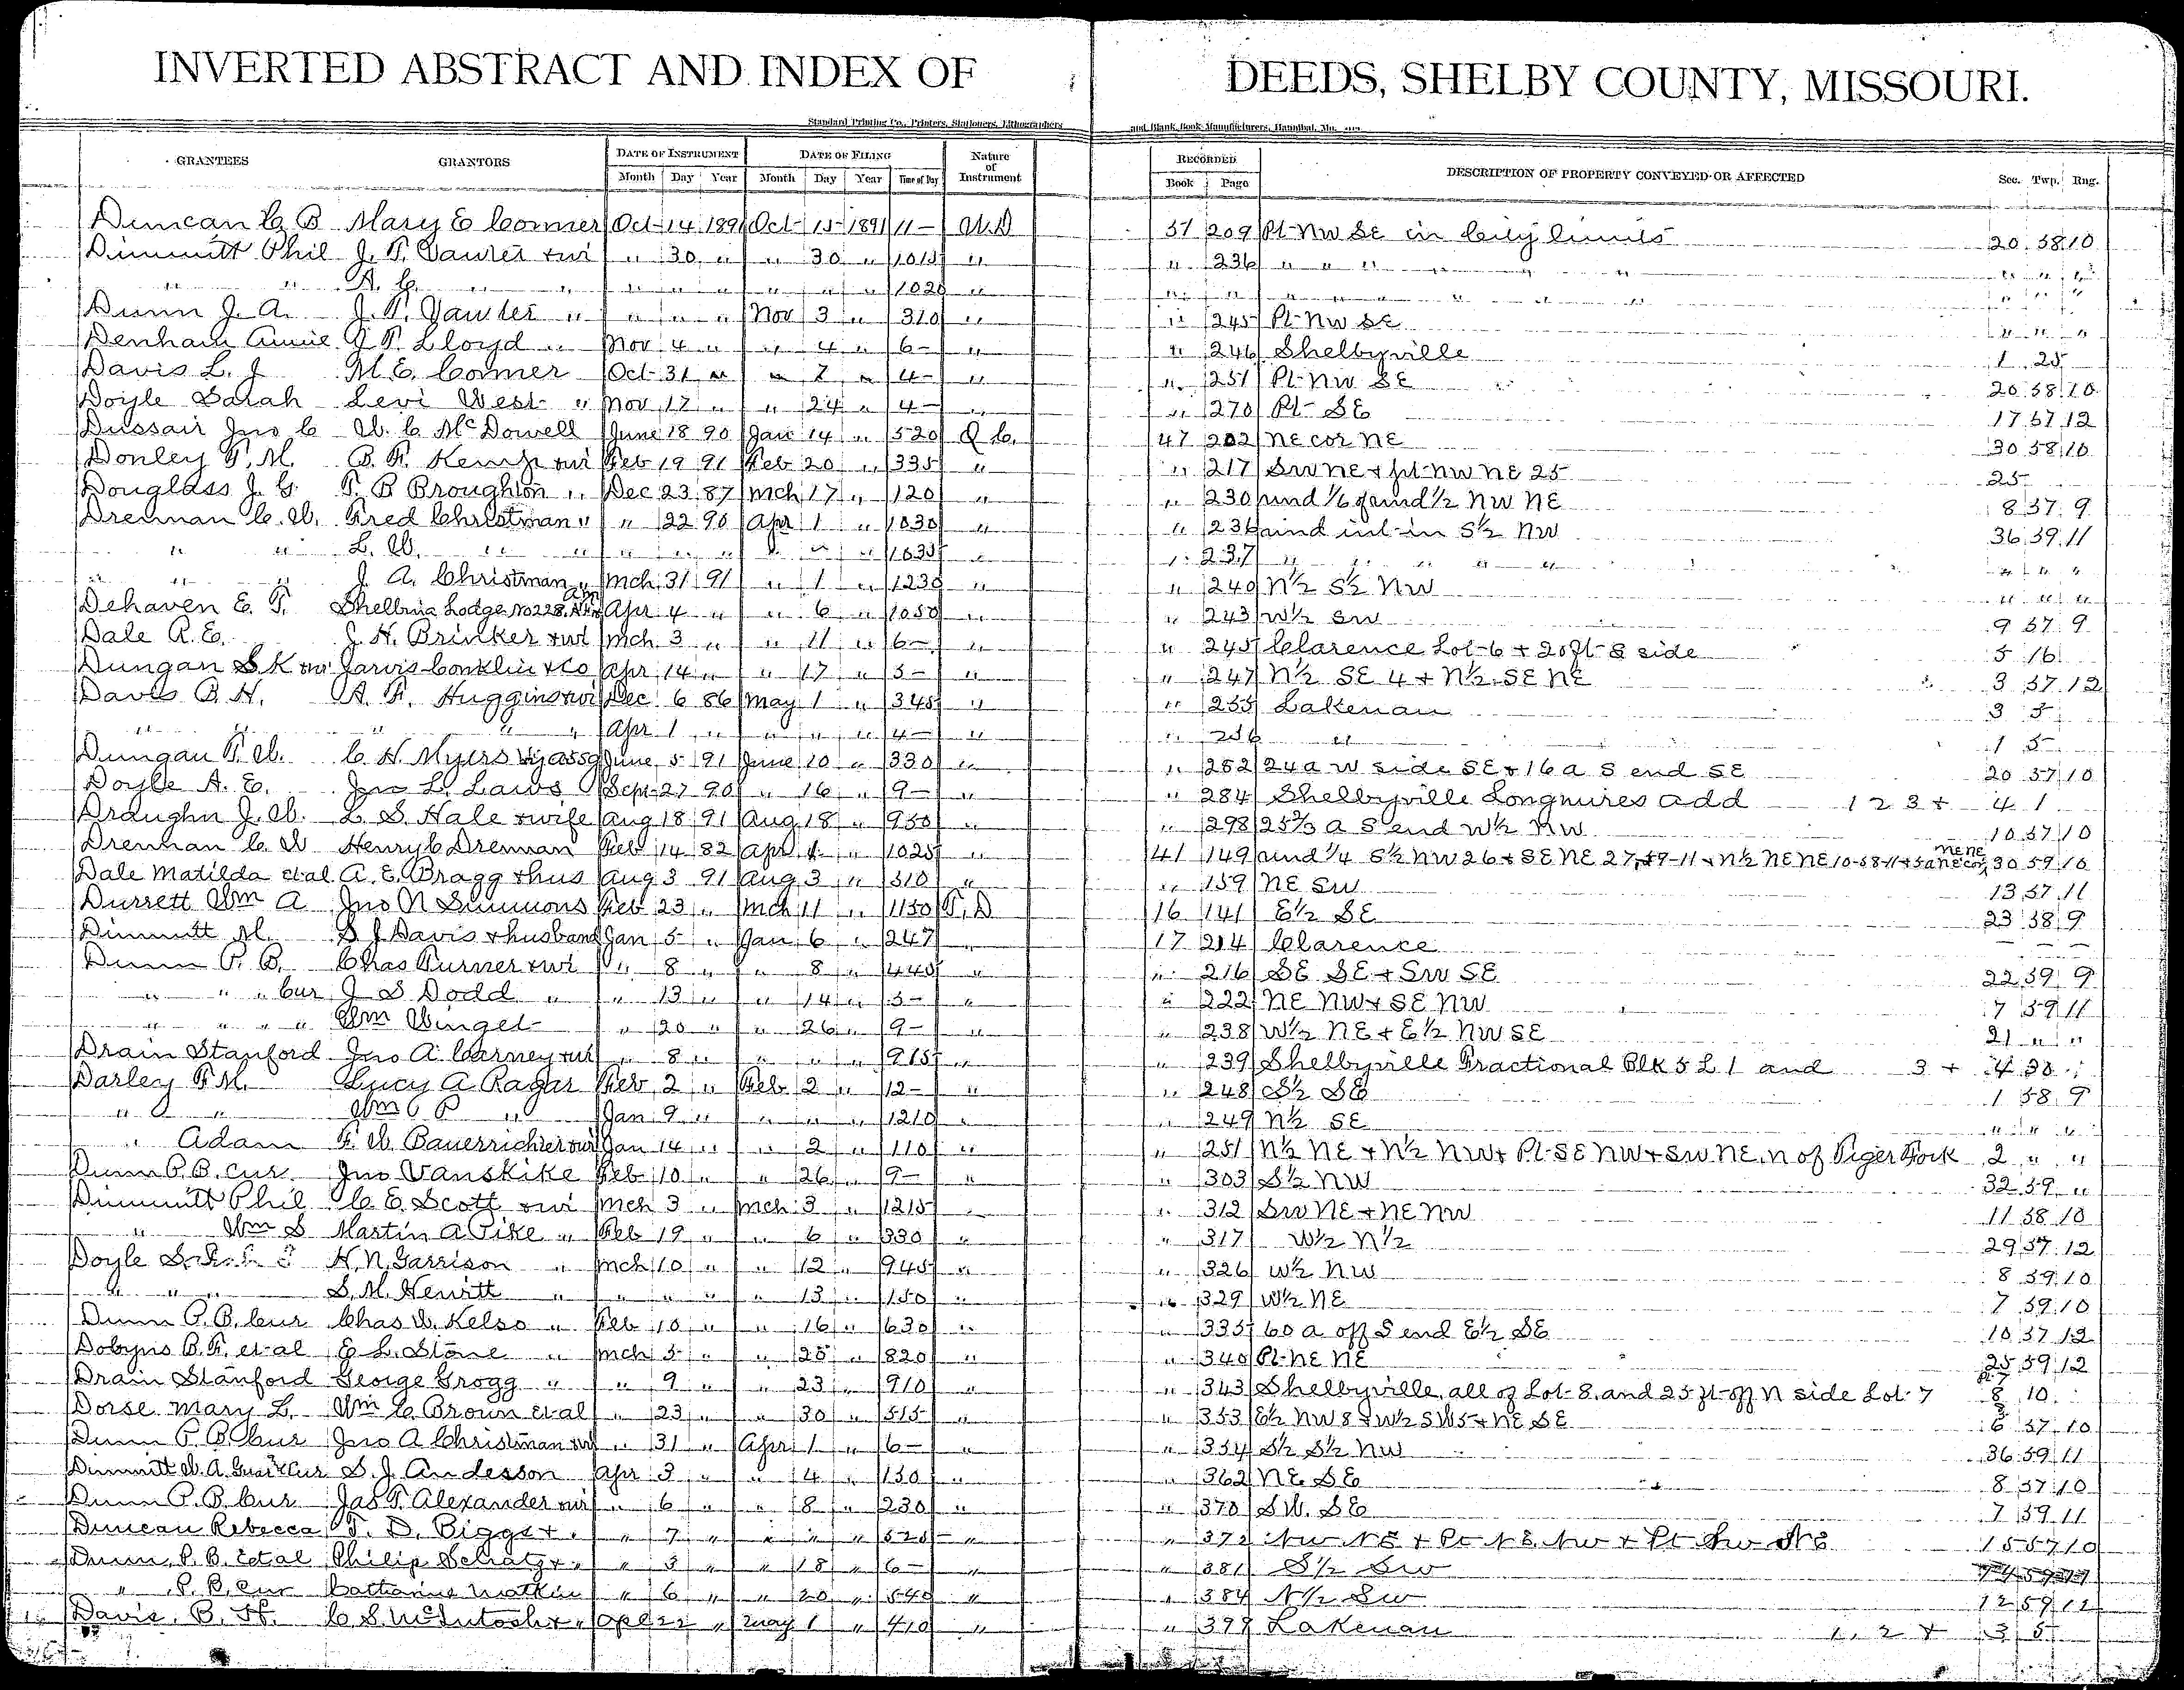 INVERTED ABSTRACT AND INDEX OF DEEDS, SHELBY COUNTY, MISSOURI.
Standard Printing Co., Printers, Stationers, Lithographers and Blank Book Manufacturers, Hannibal, Mo.
GRANTEES GRANTORS DATE OF INSTRUMENT DATE OF FILING Nature of Instrument RECORDED DESCRIPTION OF PROPERTY CONVEYED OR AFFECTED Sec. Twp. Rng.
Month Day Year Month Day Year Time of Day Book Page
Duncan C B Mary E Comer Oct 14 1891 Oct 15 1891 11- W.D 51 209 Pt NW SE in City limits 20 58 10
Dimmitt Phil J. T. Vawter + wi " 30 " " 30 " 1015 " " 236 " " " " " " " " "
" " A. C. " " " " " " " " 1020 " " " " " " " " " " " " "
Dunn J. A. J. T. Vawter " " " " Nov 3 " 310 " " 245 Pt NW SE " " "
Denham Annie J T. Lloyd " Nov 4 " " 4 " 6- " " 246 Shelbyville 1 25
Davis L. J M. E. Comer Oct 31 " " 7 " 4- " " 251 Pt NW SE 20 58 10
Doyle Sarah Levi West " Nov 17 " " 24 " 4- " " 270 Pt SE 17 57 12
Dussair Jno C W. C McDowell June 18 90 Jan 14 " 520 Q C. 47 202 NE cor NE 30 58 10
Donley T. M. B. F. Kemp + wi Feb 19 91 Feb 20 " 335 " " 217 SW NE + pt NW NE 25 25
Douglass J. G. T. B Broughton " Dec 23 87 Mch 17 " 120 " " 230 und 1/6 of und 1/2 NW NE 8 57 9
Drennan C. W. Fred Christman " " 22 90 Apr 1 " 1030 " " 236 und int in S 1/2 NW 36 59 11
" " L. W. " " " " " " " " 1035 " " 237 " " " " " " "
" " J. A. Christman " Mch 31 91 " 1 " 1230 " " 240 N 1/2 S 1/2 NW " " "
Dehaven E. T. Shelbina Lodge No 228, A F + A M Apr 4 " " 6 " 1050 " " 243 W 1/2 SW 9 57 9
Dale R. E. J. H. Brinker + wi Mch 3 " " 11 " 6- " " 245 Clarence Lot 6 + 20 ft S side 5 16
Dungan S K + wi Jarvis Conklin + Co Apr 14 " " 17 " 5- " " 247 N 1/2 SE 4 + N 1/2 SE NE 3 57 12
Davis B. H. A. F. Huggins + wi Dec 6 86 May 1 " 345 " " 255 Lakenan 3 5
" " " " Apr 1 " " " " 4- " " 256 " 1 5
Dungan T. W. C H Myers by assg June 5 91 June 10 " 330 " " 282 24 a W side SE + 16 a S end SE 20 57 10
Doyle A. E. Jno L. Laws Sept 27 90 " 16 " 9- " " 284 Shelbyville Longmires add 1 2 3 + 4 1
Draughn J. W. L. S. Hale + wife Aug 18 91 Aug 18 " 950 " " 298 25 2/3 a S end W 1/2 NW 10 57 10
Drennan C. W Henry C Drennan Feb 14 82 Apr 1 " 1025 " 41 149 und 1/4 S 1/2 NW 26 + SE NE 27, 59-11 + N 1/2 NE NE 10-58-11 + 5 a NE cor NE NE 30 59 10
Dale Matilda et al A. E. Bragg + hus Aug 3 91 Aug 3 " 510 " " 159 NE SW 13 57 11
Durrett Wm A Jno N Simmons Feb 23 " Mch 11 " 1150 T. D 16 141 E 1/2 SE 23 58 9
Dimmitt M. S J Davis + husband Jan 5 " Jan 6 " 247 " 17 214 Clarence - - -
Dunn P. B. Chas Turner + wi " 8 " " 8 " 440 " " 216 SE SE + SW SE 22 59 9
" " " Cur J S Dodd " " 13 " " 14 " 5- " " 222 NE NW + SE NW 7 59 11
" " " " Wm Winget " 20 " " 26 " 9- " " 238 W 1/2 NE + E 1/2 NW SE 21 " "
Drain Stanford Jno A. Carney + wi " 8 " " " " 915 " " 239 Shelbyville Fractional Blk 5 L 1 and 3 + 4 30
Darley T M. Lucy A Ragar Feb 2 " Feb 2 " 12- " " 248 S 1/2 SE 1 58 9
" " Wm C P " Jan 9 " " " " 1210 " " 249 N 1/2 SE " " "
" Adam F. W. Bauerrichter + wi Jan 14 " " 2 " 110 " " 251 N 1/2 NE + N 1/2 NW + Pt SE NW + SW NE. N of Tiger Fork 2 " "
Dunn P. B. Cur Jno Vanskike Feb 10 " " 26 " 9- " 303 S 1/2 NW 32 59 "
Dimmitt Phil C. E. Scott + wi Mch 3 " Mch 3 " 1215 " " 312 SW NE + NE NW 11 58 10
" Wm S Martin A Pike " Feb 19 " " 6 " 330 " " 317 W 1/2 N 1/2 29 57 12
Doyle H. N. Garrison " Mch 10 " " 12 " 945 " " 326 W 1/2 NW 8 59 10
" " S. M. Hewitt " " " " " 13 " 150 " " 329 W 1/2 NE 7 59 10
Dunn P. B. Cur Chas W. Kelso " Feb 10 " " 16 " 630 " " 335 60 a off S end E 1/2 SE 10 57 12
Dobyns B. F. et al E L. Stone " Mch 5 " " 25 " 820 " " 340 Pt NE NE 25 59 12
Drain Stanford George Grogg " " 9 " " 23 " 910 " 343 Shelbyville, all of Lot 8. and 25 ft off N side Lot 7 pt 7 8 10
Dorse Mary L. Wm C. Brown et al " 23 " " 30 " 515 " 353 E 1/2 NW 8 + W 1/2 SW 5 + NE SE 6 57 10
Dunn P. B. Cur Jno A Christman + wi " 31 " Apr 1 " 6- " " 354 S 1/2 S 1/2 NW 36 59 11
Dimmitt W. A. Guar + Cur S. J. Andesson Apr 3 " " 4 " 130 " " 362 NE SE 8 57 10
Dunn P. B. Cur Jas T. Alexander + wi " 6 " " 8 " 230 " " 370 SW. SE 7 59 11
Duncan Rebecca T. D. Biggs + " " 7 " " " " 525 " " 372 NW NE + Pt NE NW + Pt SW NE 15 57 10
Dunn, P. B. et al Philip Schatz + " " 3 " " 18 " 6- " " 381 S 1/2 SW
" P. B. Cur Catharine Watkins " 6 " " 20 " 540 " " 384 N 1/2 SW 12 59 12
Davis, B. H. C S McIntosh + " Apr 22 " May 1 " 410 " " 399 Lakenan 1, 2 + 3 5